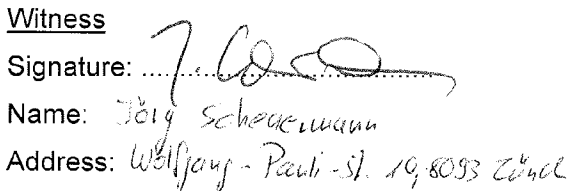 Witness
Signature:
Name: Jörg Scheuermann
Address: Wolfgang-Pauli-St. 10, 8093 Zürich